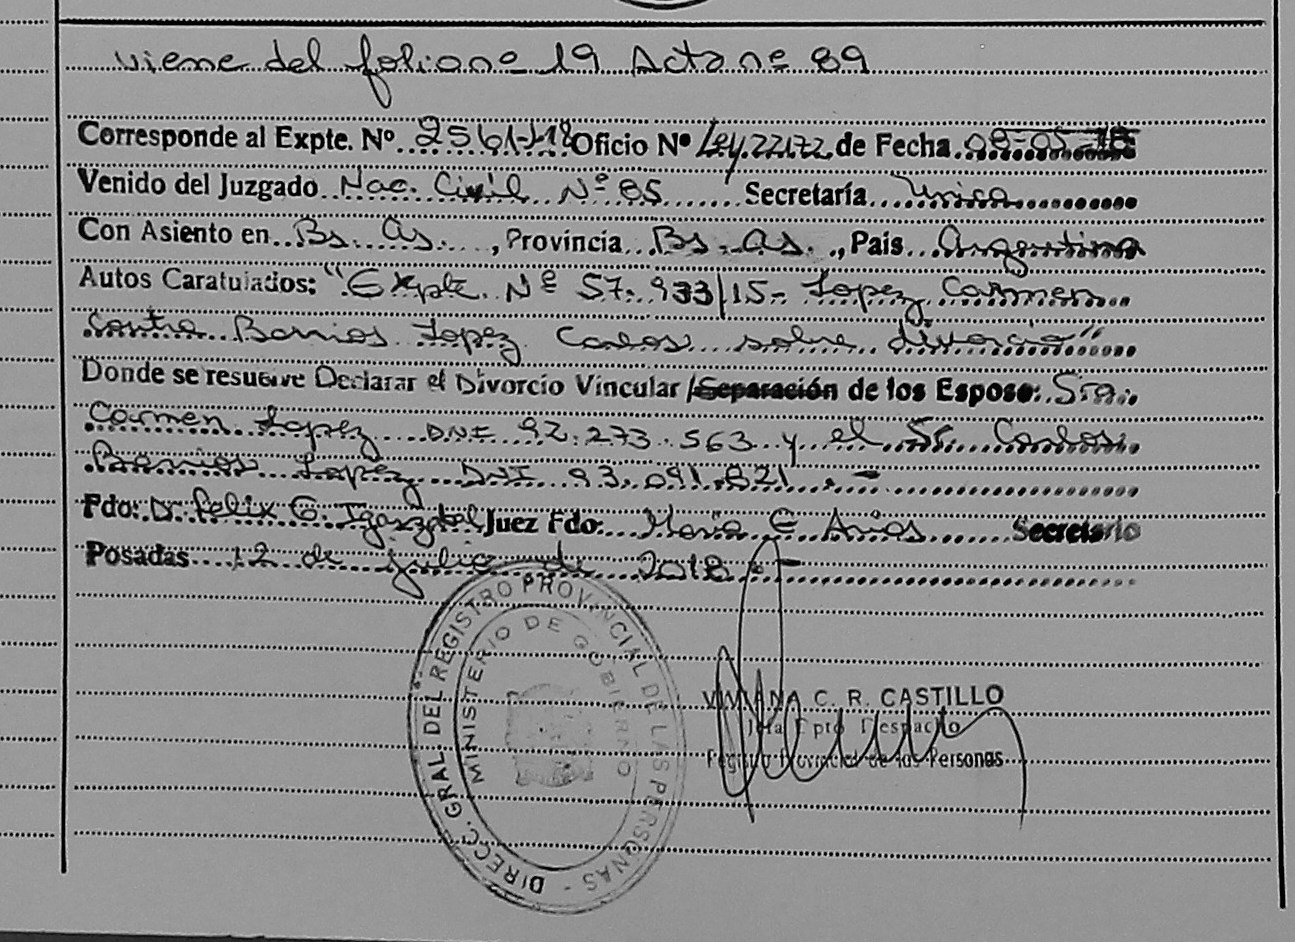 viene del folio nº 19 Acta nº 89
Corresponde al Expte. Nº 2561-J-18 Oficio Nº Ley 22172 de Fecha 08-05-18
Venido del Juzgado Nac. Civil Nº 85 Secretaría Unica
Con Asiento en Bs. As. , Provincia Bs. As. , País Argentina
Autos Caratulados: "Expte. Nº 57.933/15- Lopez Carmen
contra Barrios Lopez Carlos sobre divorcio"
Donde se resuelve Declarar el Divorcio Vincular /Separación de los Esposo: Sra.
Carmen Lopez DNI 92.273.563 y el Sr. Carlos
Barrios Lopez DNI 93.091.821 . -
Fdo: Dr Felix G. Juez Fdo: Maria E Arias Secretario
Posadas 12 de julio de 2018.-
DIRECC. GRAL. DEL REGISTRO PROVINCIAL DE LAS PERSONAS -
MINISTERIO DE GOBIERNO
VIVIANA C. R. CASTILLO
Jefa Dpto Despacho
Registro Provincial de las Personas